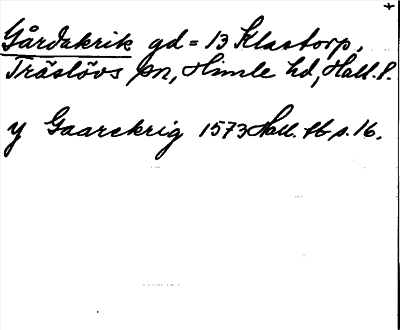 Gårdakrik gd = 13 Klastorp,
Träslövs sn, Himle hd, Hall. l.
y Gaarekrig 1573 Hall. tb s. 16.